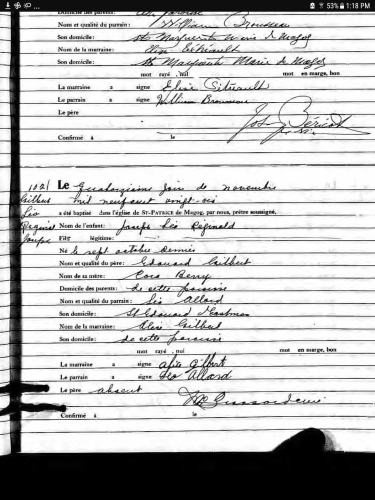 53% 1:18 PM
Domicile des parents:
Nom et qualité du parrain: William Brousseau
Son domicile: Ste Marguerite Marie de Magog
Nom de la marraine:
Son domicile: Ste Marguerite Marie de Magog
mot rayé, nul mot en marge, bon
La marraine a signé
Le parrain a signé William Brousseau
Le père
Jos. Bérard
Confirmé à le
Le Quatorzième jour de novembre
mil neuf cent vingt-six
a été baptisé dans l'église de ST-PATRICE de Magog, par nous, prêtre soussigné,
Gilbert
Léo
Réginald
Joseph
Nom de l'enfant: Joseph Léo Réginald
Fils légitime:
Né le sept octobre dernier
Nom et qualité du père: Édouard Gilbert
Nom de sa mère: Cora Berry
Domicile des parents: de cette paroisse
Nom et qualité du parrain: Léo Allard
Son domicile: St Édouard d'Eastman
Nom de la marraine: Gilbert
Son domicile: de cette paroisse
mot rayé, nul mot en marge, bon
La marraine a signé Gilbert
Le parrain a signé Léo Allard
Le père absent
Confirmé à le